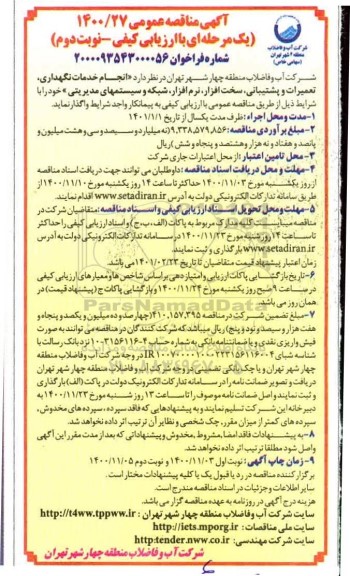 آگهی مناقصه عمومی ۱۴۰۰/۲۷
(یک مرحله‌ای با ارزیابی کیفی -نوبت دوم)
شماره فراخوان ۲۰۰۰۰۹۳۵۴۳۰۰۰۰۵۶
شرکت آب و فاضلاب
منطقه ۴ شهر تهران
(سهامی خاص)
شرکت آب و فاضلاب منطقه چهار شهر تهران در نظر دارد «انجام خدمات نگهداری،
تعمیرات و پشتیبانی، سخت افزار، نرم افزار، شبکه و سیستمهای مدیریتی» خود را با
شرایط ذیل از طریق مناقصه عمومی با ارزیابی کیفی به پیمانکار واجد شرایط واگذار نماید.
۱-مدت و محل اجراء: ظرف مدت یکسال از تاریخ ۱۴۰۱/۱/۱
۲-مبلغ برآوردی مناقصه: ۹،۳۳۸،۵۷۹،۸۵۶(نه میلیارد و سیصد و سی و هشت میلیون و
پانصد و هفتاد و نه هزار و هشتصد و پنجاه و شش) ریال
۳-محل تامین اعتبار: از محل اعتبارات جاری شرکت
۴-مهلت و محل دریافت اسناد مناقصه: داوطلبان می توانند جهت دریافت اسناد مناقصه
از روز یکشنبه مورخ ۱۴۰۰/۱۱/۰۳ حداکثر تا ساعت ۱۴ روز یکشنبه مورخ ۱۴۰۰/۱۱/۱۰ از
طریق سامانه تدارکات الکترونیکی دولت به آدرس www.setadiran.ir اقدام نمایند.
۵-مهلت و محل تحویل اسناد ارزیابی کیفی و اسناد مناقصه: متقاضیان شرکت در
مناقصه میبایست کلیه مدارک مربوط به پاکات (الف، ب، ج) و اسناد ارزیابی کیفی را حداکثر
تا ساعت ۱۴ روز شنبه مورخ ۱۴۰۰/۱۱/۲۳ در سامانه تدارکات الکترونیکی دولت به آدرس
www.setadiran.ir بارگذاری و ثبت نمایند.
زمان اعتبار پیشنهاد قیمت متقاضیان تا تاریخ ۱۴۰۱/۰۲/۲۳ می باشد.
۶-تاریخ بازگشایی پاکات ارزیابی و امتیازدهی بر اساس شاخص ها و معیارهای ارزیابی کیفی
در ساعت ۹ صبح روز یکشنبه مورخ ۱۴۰۰/۱۱/۲۴ و بازگشایی پاکات ج (پیشنهاد قیمت) در
همان روز می باشد.
۷-مبلغ تضمین شرکت در مناقصه ۴۱۰،۱۵۷،۳۹۵(چهارصد و ده میلیون و یکصد و پنجاه و
هفت هزار و سیصد و نود و پنج) ریال میباشد که شرکت کنندگان در مناقصه می توانند به صورت
فیش واریزی نقدی و یا ضمانتنامه بانکی به شماره حساب
چهار شهر تهران و یا چک بانکی تضمینی در وجه شرکت آب و فاضلاب منطقه چهار شهر تهران
دریافت و تصویر ضمانت نامه را در سامانه تدارکات الکترونیک دولت در پاکت (الف) بارگذاری
و ثبت نمایند و اصل ضمانت نامه موصوف را تا ساعت ۱۳ روز شنبه مورخ ۱۴۰۰/۱۱/۲۳ به
دبیرخانه این شرکت تسلیم نمایند و به پیشنهادهایی که فاقد سپرده، سپرده های مخدوش،
سپرده های کمتر از میزان مقرر، چک شخصی و نظایر آن ترتیب اثر داده نخواهد شد.
۸-به پیشنهادات فاقد امضا، مشروط، مخدوش و پیشنهاداتی که بعد از مدت مقرر این آگهی
واصل شود مطلقا ترتیب اثر داده نخواهد شد.
۹-زمان چاپ آگهی: نوبت اول ۱۴۰۰/۱۱/۰۳ و نوبت دوم ۱۴۰۰/۱۱/۰۵
برگزار کننده مناقصه در رد یا قبول یک یا کلیه پیشنهادات مختار است.
سایر اطلاعات و جزئیات در اسناد مناقصه مندرج است.
هزینه درج آگهی در روزنامه به عهده مناقصه گزار می باشد.
سایت شرکت آب و فاضلاب منطقه چهار شهر تهران: http://t4ww.tpww.ir
سایت ملی مناقصات: http://iets.mporg.ir
سایت شرکت مهندسی: http:tender.nww.co.ir
شرکت آب و فاضلاب منطقه چهار شهر تهران
ParsNamadData